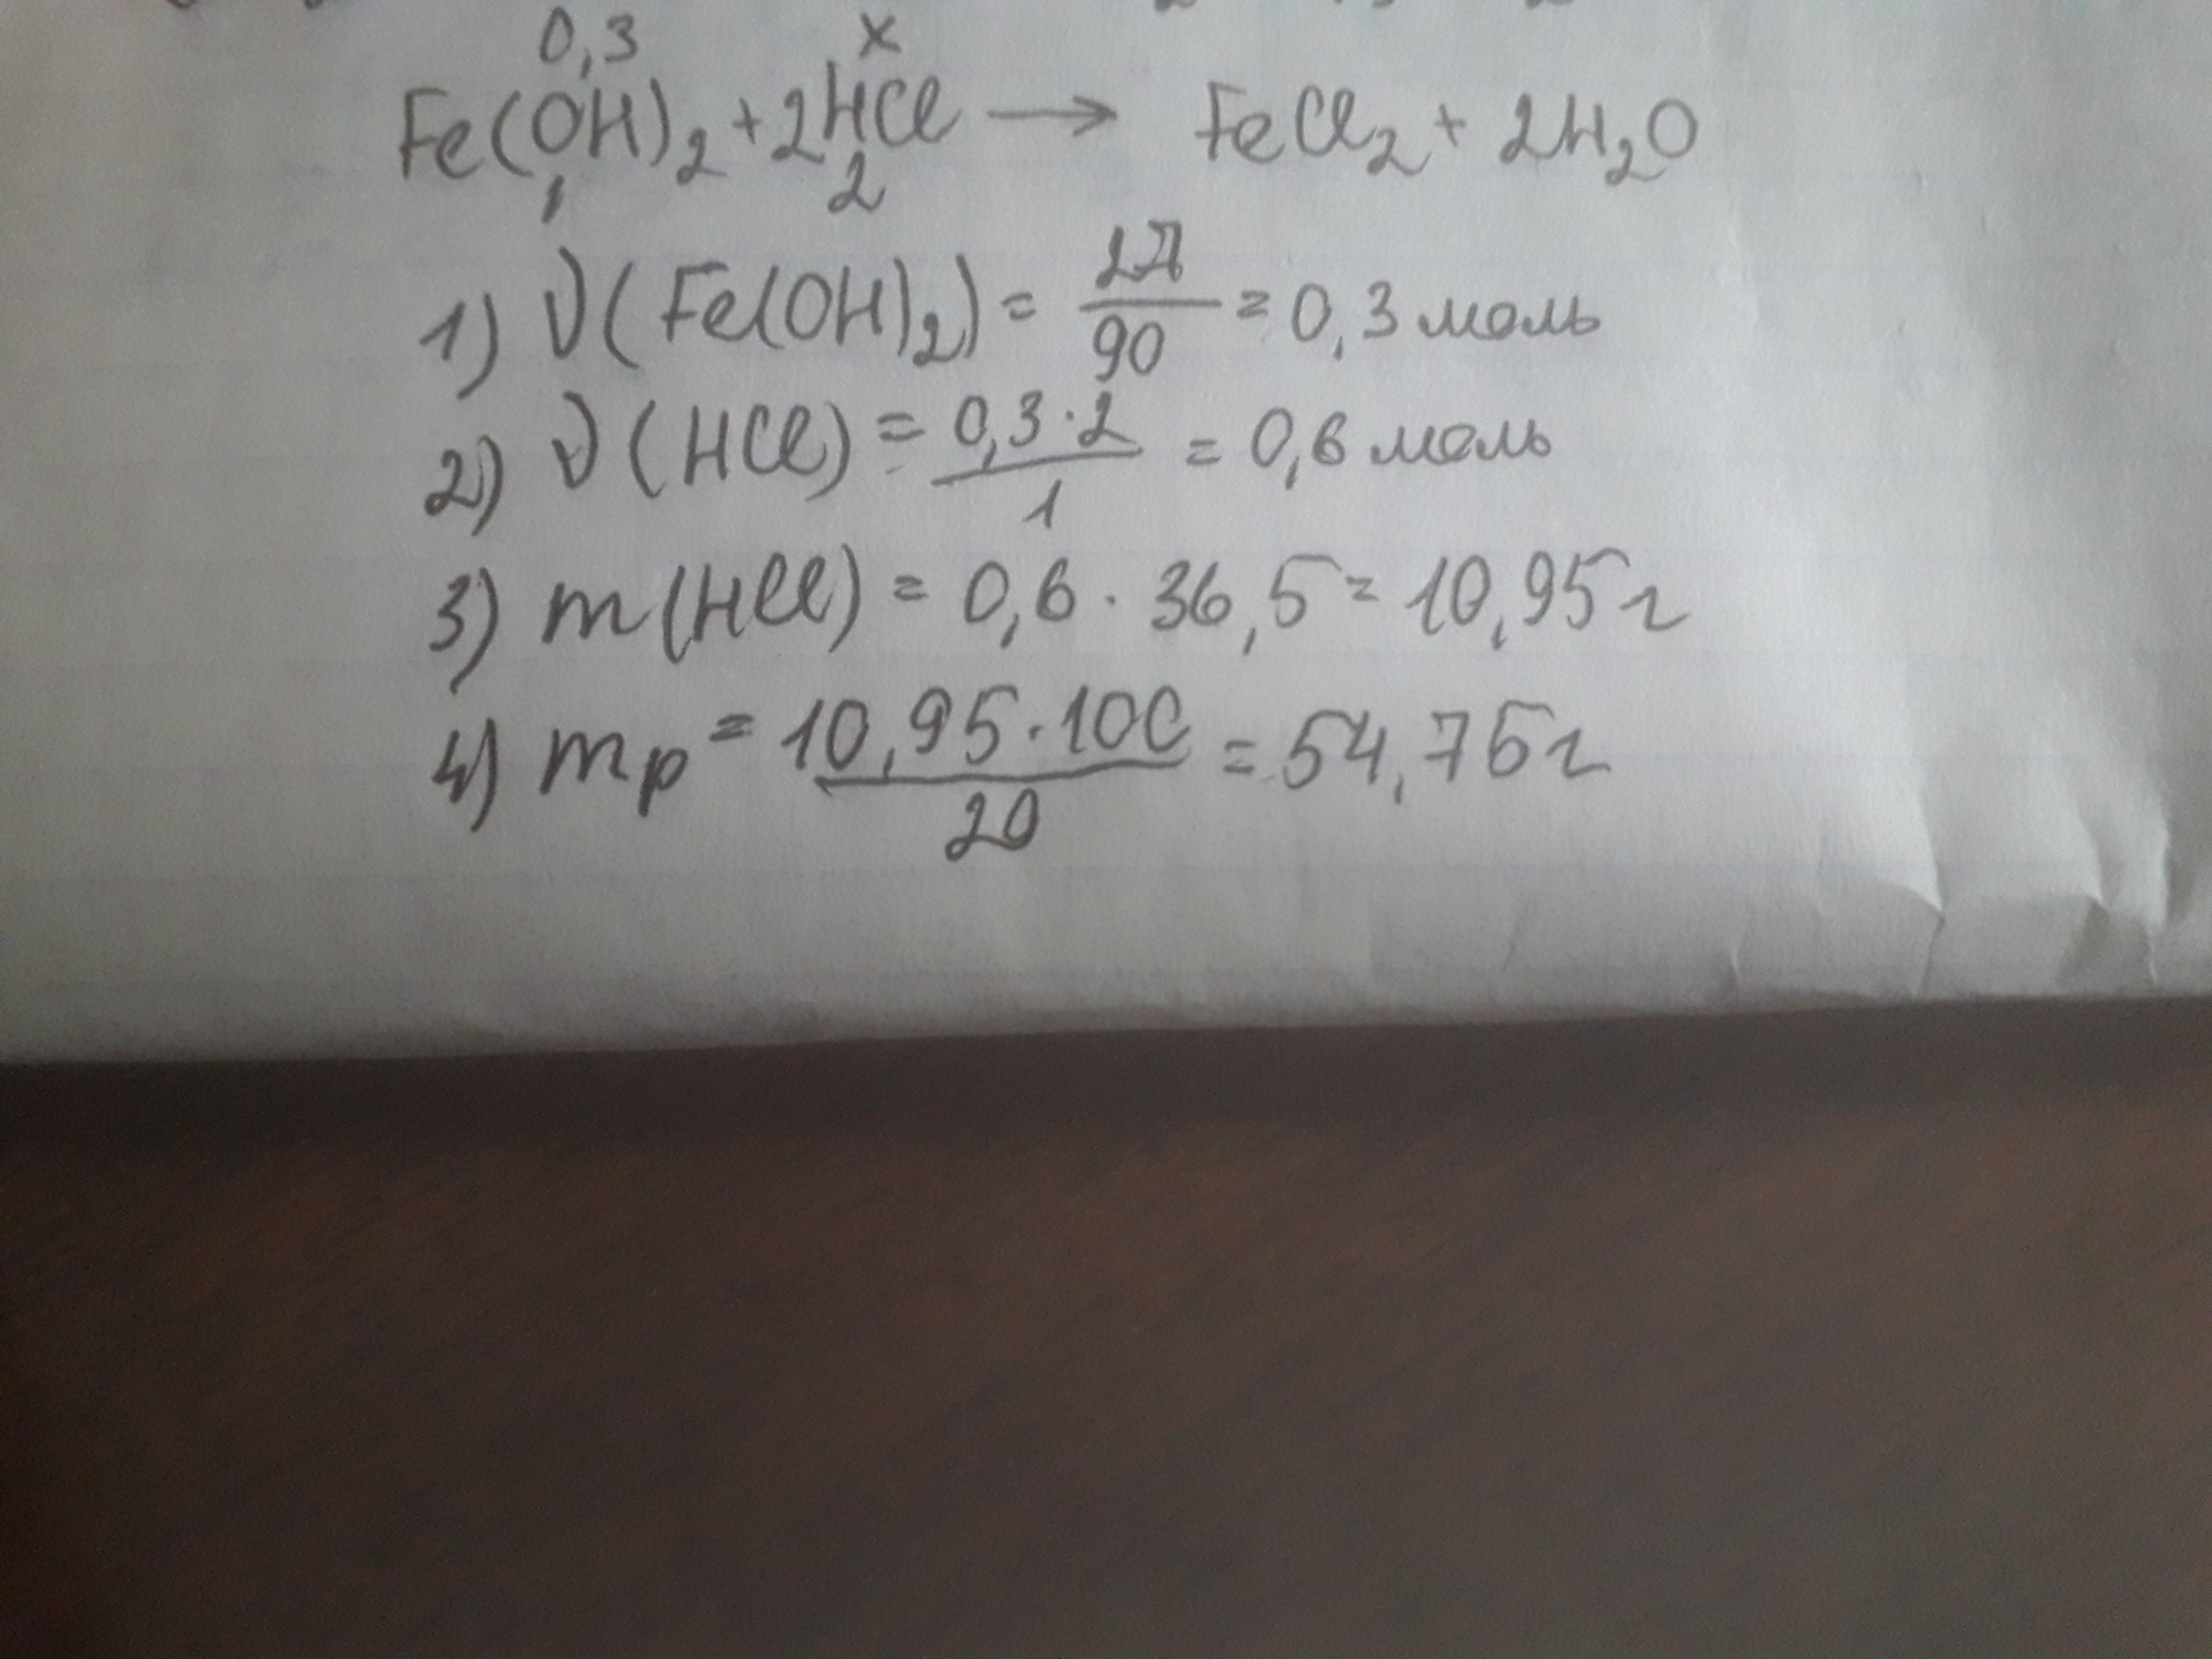 0,3 x
Fe(OH)₂ + 2HCl → FeCl₂ + 2H₂O
1 2
1) ν(Fe(OH)₂) = 27/90 = 0,3 моль
2) ν(HCl) = 0,3·2/1 = 0,6 моль
3) m(HCl) = 0,6 · 36,5 = 10,95 г
4) mр = 10,95·100/20 = 54,75 г